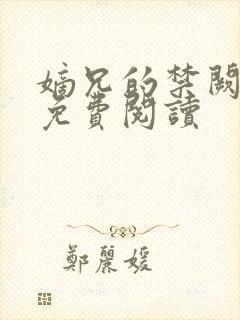 嫡兄的禁闕
免費閱讀
鄭麗媛